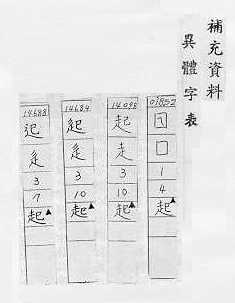 補充資料
異體字表
01852
囗
1
4
起▲
14098
起
走
3
10
起▲
14684
辵
3
10
起▲
14688
辵
3
7
起▲